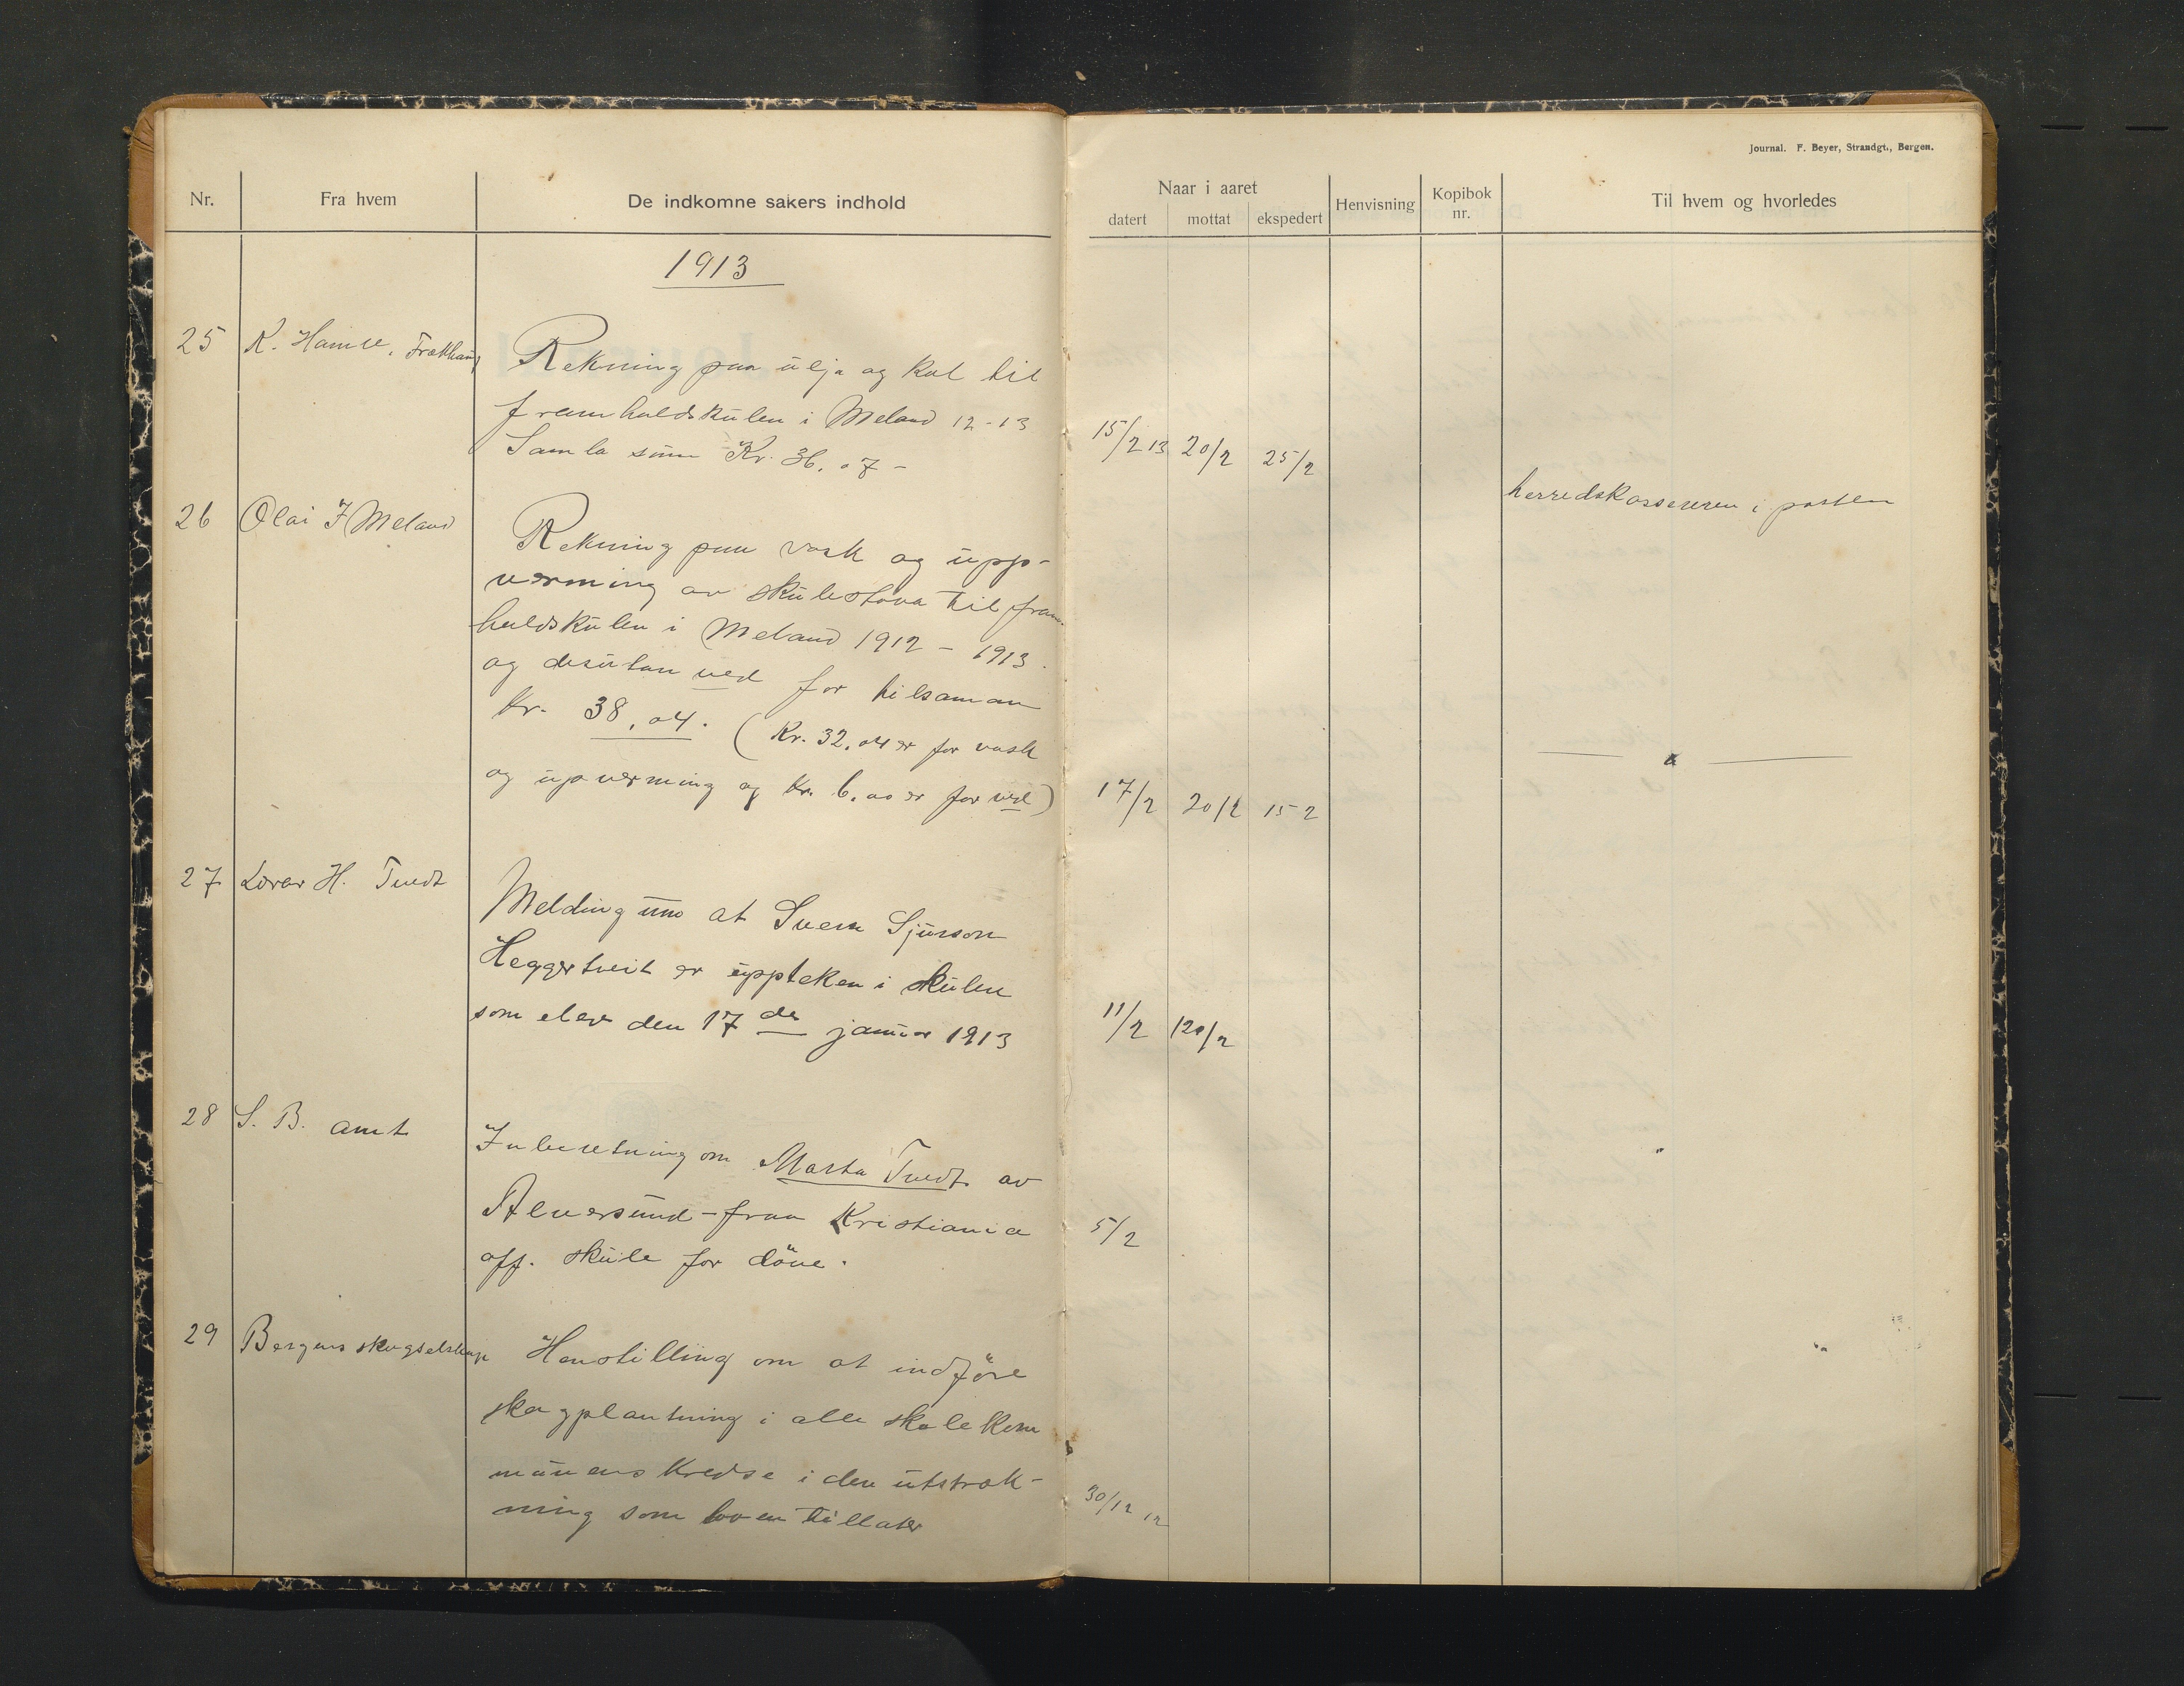 Journal. F. Beyer, Strandgt., Bergen.
Nr.
Fra hvem
De indkomne sakers indhold
Naar i aaret
datert
mottat
ekspedert
Henvisning
Kopibok
nr.
Til hvem og hvorledes
1913
25
K. Hamre, Frækhaug
Rekning paa ulja og Kol til
framhaldskulen i Meland 12-13
Samla sum Kr. 36,07 -
15/2 13
20/2
25/2
herredskassereren i posten
26
Olai J Meland
Rekning paa vask og upp-
verming av skulestova til fram-
haldskulen i Meland 1912 - 1913.
og desutan ved for tilsaman
Kr. 38,04. (Kr. 32,04 er for vask
og upverming og Kr. 6,00 er for ved)
17/2
20/2
15 2
27
Lærar H. Tvedt
Melding um at Sverre Sjurson
Heggertveit er uppteken i skulen
som elev den 17 de januar 1913
11/2
120/2
28
S. B. amt
Inberetning om Marta Tvedt av
Alversund - fraa Kristiania
off. skule for döve.
5/2
29
Bergens skogselskap
Henstilling om at indföre
skogplantning i alle skolekom
munens Kredse i den utstræk-
ning som loven tillater
30/12 12